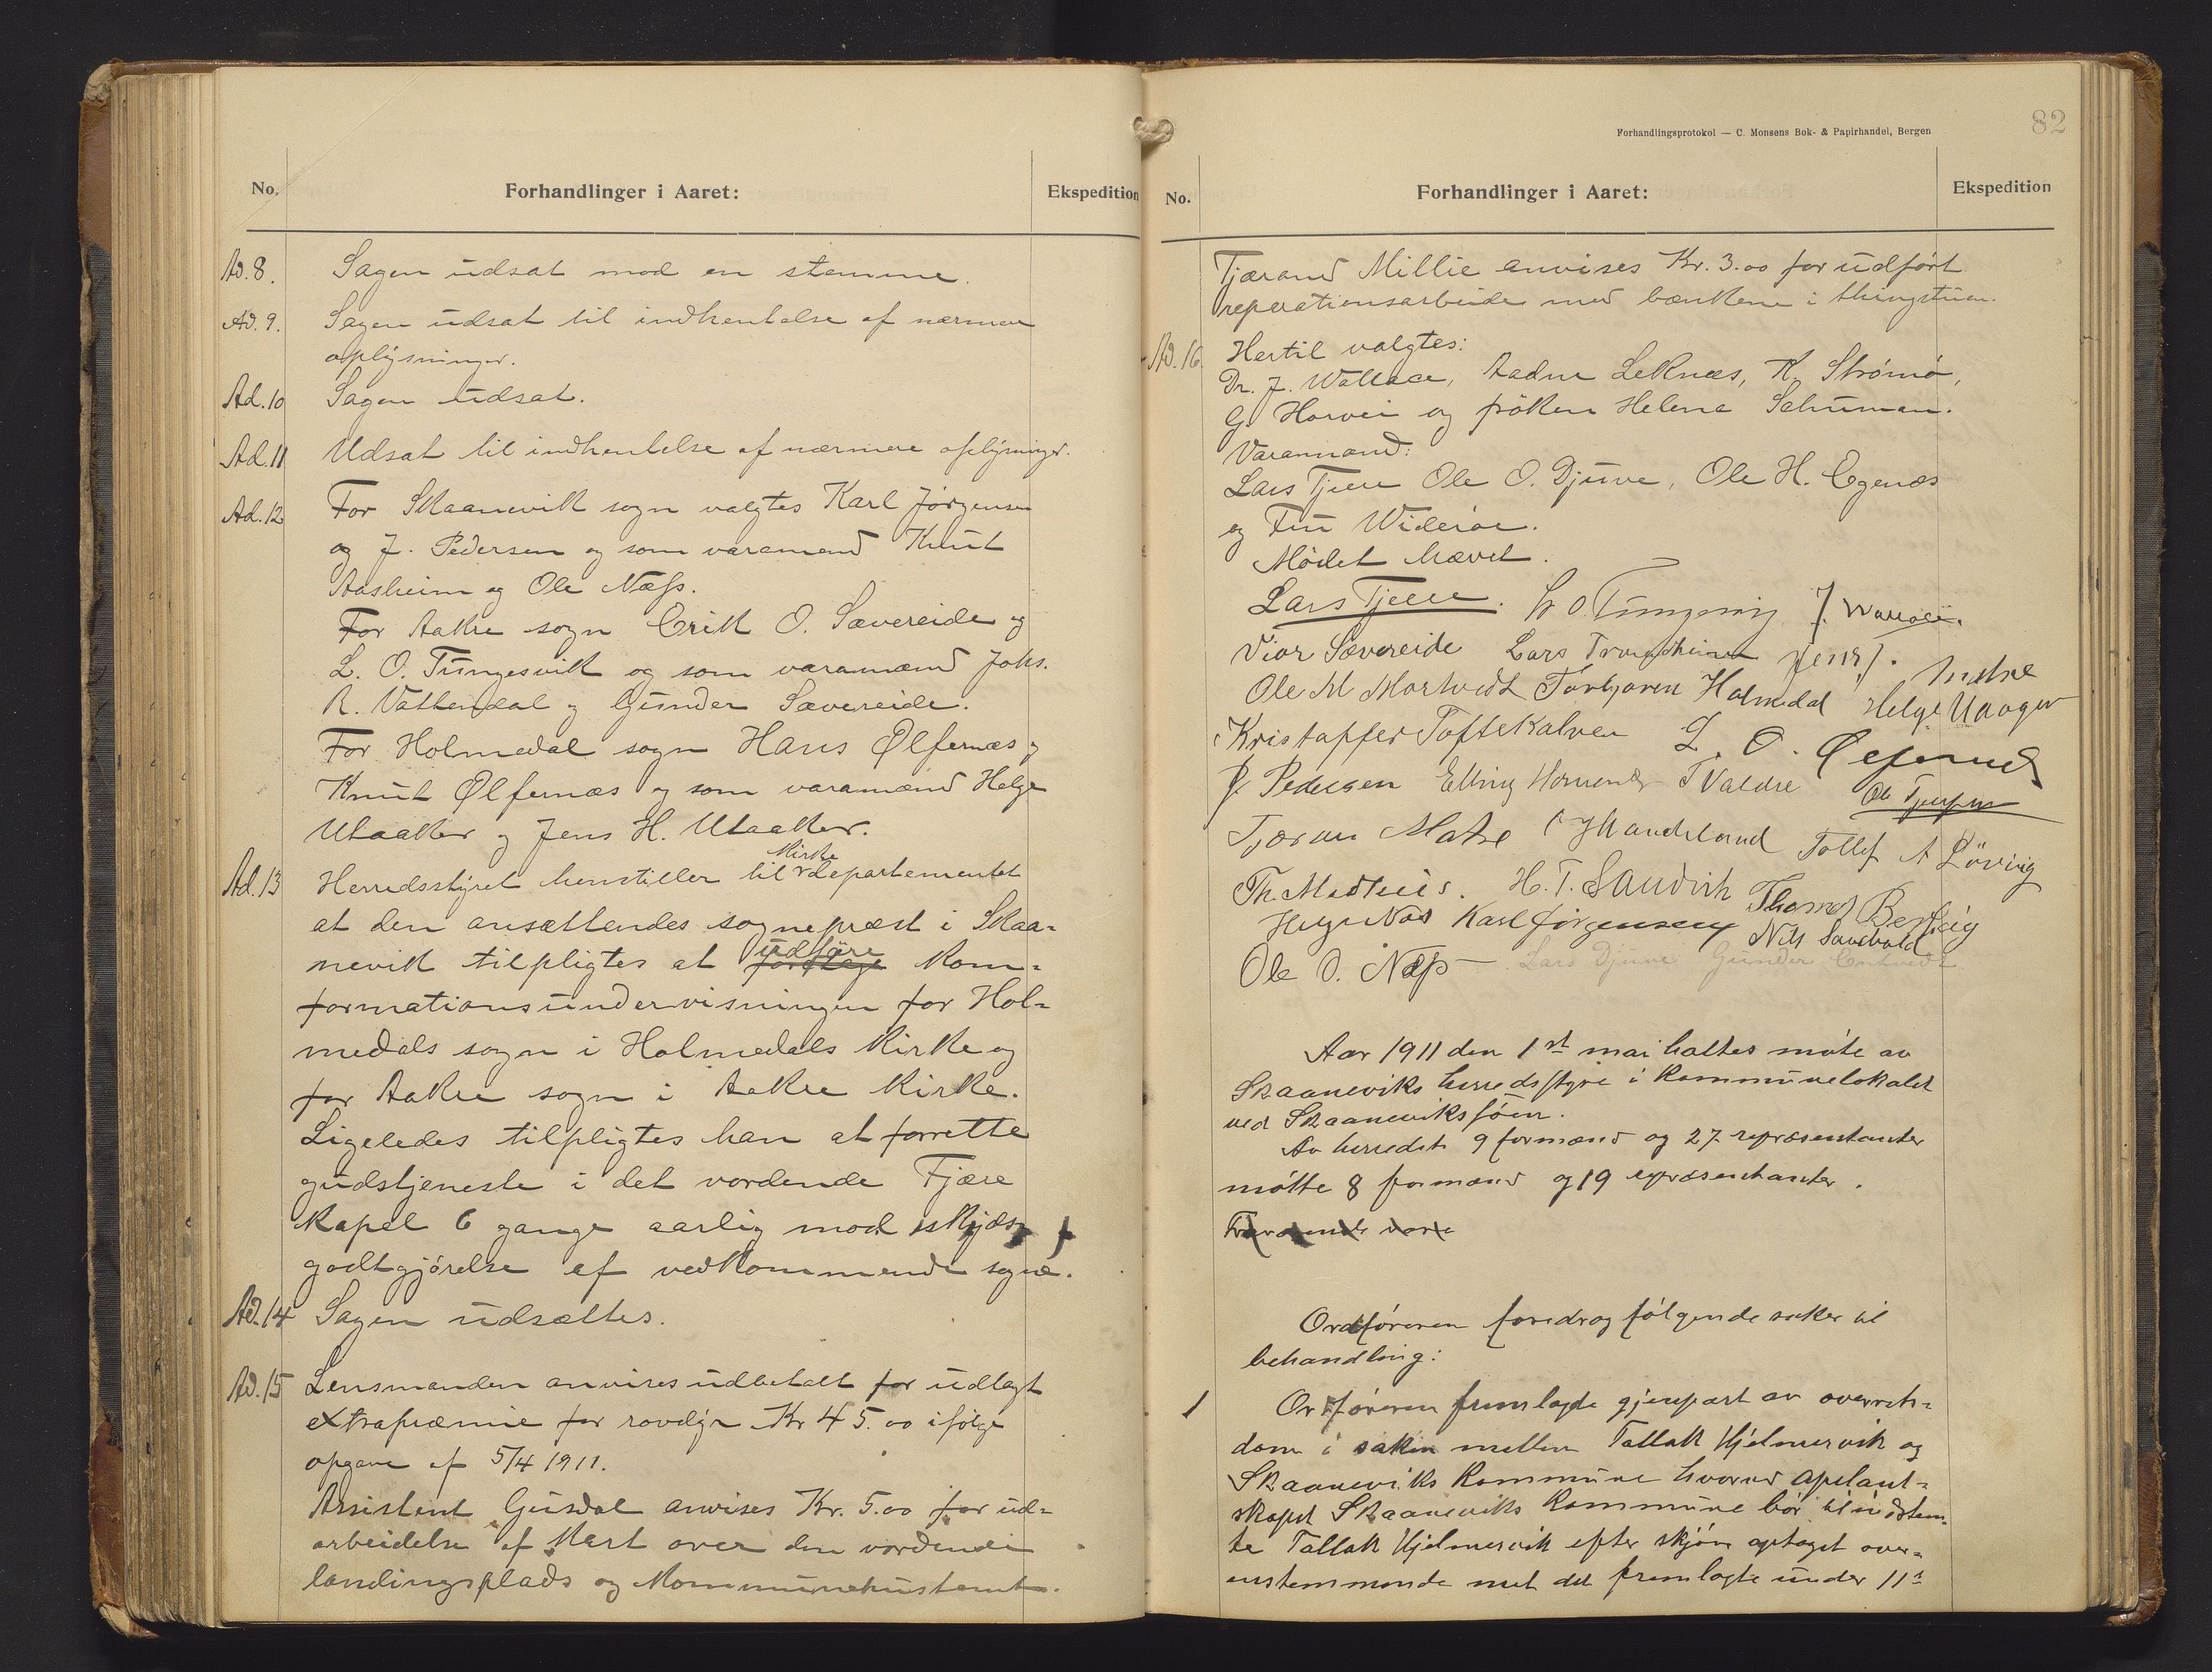 No. Forhandlinger i Aaret: Ekspedition
Ad. 8. Sagen udsat mod en stemme.
Ad. 9. Sagen udsat til indhentelse af nærmere
oplysninger.
Ad. 10 Sagen udsat.
Ad. 11 Udsat til indhentelse af nærmere oplysninger.
Ad. 12 For Skaanevik sogn valgtes Karl Jørgensen
og J. Pedersen og som varamænd Knut
Aasheim og Ole Næss.
For Aakre sogn Erik O. Sævereide og
L. O. Tungesvik og som varamænd Johs.
R. Vattendal og Gunder Sævereide.
For Holmedal sogn Hans Ølfernæs og
Knut Ølfernæs og som varamænd Helge
Utaaker og Jens H. Utaaker.
Ad. 13 Herredsstyret henstiller til kirkedepartementet
at den ansættendes sogneprest i Skaa-
nevik tilpligtes at udføre Kon-
formationsundervisningen for Hol-
medals sogn i Holmedals Kirke og
for Aakre sogn i Aakre Kirke.
Ligeledes tilpligtes han at forrette
gudstjeneste i det vordende Fjære
Kapel 6 gange aarlig mod skyds-
godtgjørelse af vedkommende sogne.
Ad. 14 Sagen udsættes.
Ad. 15 Lensmanden anvises udbetalt for udlagt
extrapræmie for rovdyr Kr 45.00 ifølge
opgave af 5/4 1911.
Assistent Gusdal anvises Kr. 5.00 for ud-
arbeidelse af Kart over den vordende
landingsplads og Kommunehustomt.
82
Forhandlingsprotokol — C. Monsens Bok- & Papirhandel, Bergen
No. Forhandlinger i Aaret: Ekspedition
Tjærand Millie anvises Kr. 3.00 for udført
reperationsarbeide med bænkene i thingstuen.
Ad. 16 Hertil valgtes:
Dr. J. Wallace, Aadne Leknæs, K. Strømø,
G. Horvei og frøken Helena Schuman.
Varamænd:
Lars Tjere Ole O. Djuve, Ole H. Egenæs
og Fru Widerøe.
Mødet hævet.
Lars Tjere. L. O. Tungesvig J. Wallace.
Vier Sævereide Lars Jens J. Indre
Ole M Mortvedt Torbjøren Holmedal Helge Utaager
Kristaffer Toftekalven L. O.
J. Pedersen Elling T Valdre Ole
Tjæran Matre Mandeland Tollef A
Th. Medhus. H. T. Sandvik Thomas
Helge Næs Karl Jørgensen Nils
Ole O. Næss Lars Djuve Gunder
Aar 1911 den 1st mai holtes møte av
Skaaneviks herredsstyre i Kommunelokalet
ved Skaanevikssjøen.
Av herredets 9 formænd og 27 repræsentanter
møtte 8 formænd og 19 repræsentanter.
Fraværende vare
Ordføreren foredrog følgende saker til
behandling:
1 Ordføreren fremlagde gjenpart av overrets-
dom i saken mellem Tallak Hjelmervik og
Skaaneviks Kommune hvorved apelant-
skapet Skaaneviks Kommune bør til indstem-
te Tallak Hjelmervik efter skjøn optaget over-
enstemmende met det fremlagte under 11te